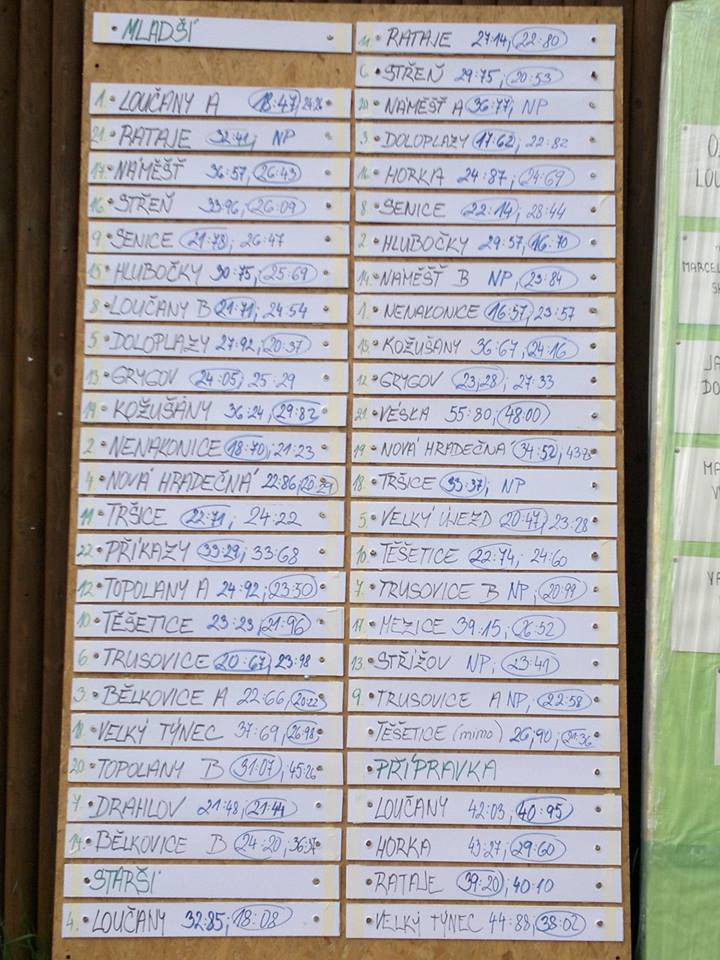 MLADŠÍ
1. LOUČANY A 18:47; 24:26
21. RATAJE 32:41; NP
17. NÁMĚŠŤ 36:57; 26:43
16. STŘEŇ 33:96; 26:09
9. SENICE 21:78; 26:47
15. HLUBOČKY 30:75; 25:69
8. LOUČANY B 21:71; 24:54
5. DOLOPLAZY 27:92; 20:37
13. GRYGOV 24:05; 25:29
19. KOŽUŠANY 36:24; 29:82
2. NENAKONICE 18:70; 21:23
4. NOVÁ HRADEČNÁ 22:86; 20:29
11. TRŠICE 22:71; 24:22
22. PŘÍKAZY 33:29; 33:68
12. TOPOLANY A 24:92; 23:50
10. TĚŠETICE 23:23; 21:96
6. TRUSOVICE 20:67; 23:98
3. BĚLKOVICE A 22:66; 20:22
18. VELKÝ TÝNEC 37:69; 26:98
20. TOPOLANY B 31:07; 45:26
7. DRAHLOV 21:48; 21:44
14. BĚLKOVICE B 24:20;
STARŠÍ
4. LOUČANY 32:85; 18:08
11. RATAJE 27:14; 22:80
6. STŘEŇ 29:75; 20:53
20. NÁMĚŠŤ A 36:77; NP
3. DOLOPLAZY 17:62; 22:82
16. HORKA 24:87; 24:69
8. SENICE 22:14; 28:44
2. HLUBOČKY 29:57; 16:70
14. NÁMĚŠŤ B NP; 23:84
1. NENAKONICE 16:57; 23:57
15. KOŽUŠANY 36:67; 24:16
12. GRYGOV 23,28; 27:33
21. VÉSKA 55:80; 48:00
19. NOVÁ HRADEČNÁ 34:52;
18. TRŠICE 33:37; NP
5. VELKÝ ÚJEZD 20:47; 23:28
10. TĚŠETICE 22:74; 24:60
7. TRUSOVICE B NP; 20:99
17. MEZICE 39:15; 26:52
13. STŘÍŽOV NP; 23:41
9. TRUSOVICE A NP; 22:58
TĚŠETICE (mimo) 26,90; 21:36
PŘÍPRAVKA
LOUČANY 42:03; 40:95
HORKA 43:27; 29:60
RATAJE 39:20; 40:10
VELKÝ TÝNEC 44:88; 38:02
LOU
MARCEL
JA
DO
MA
V